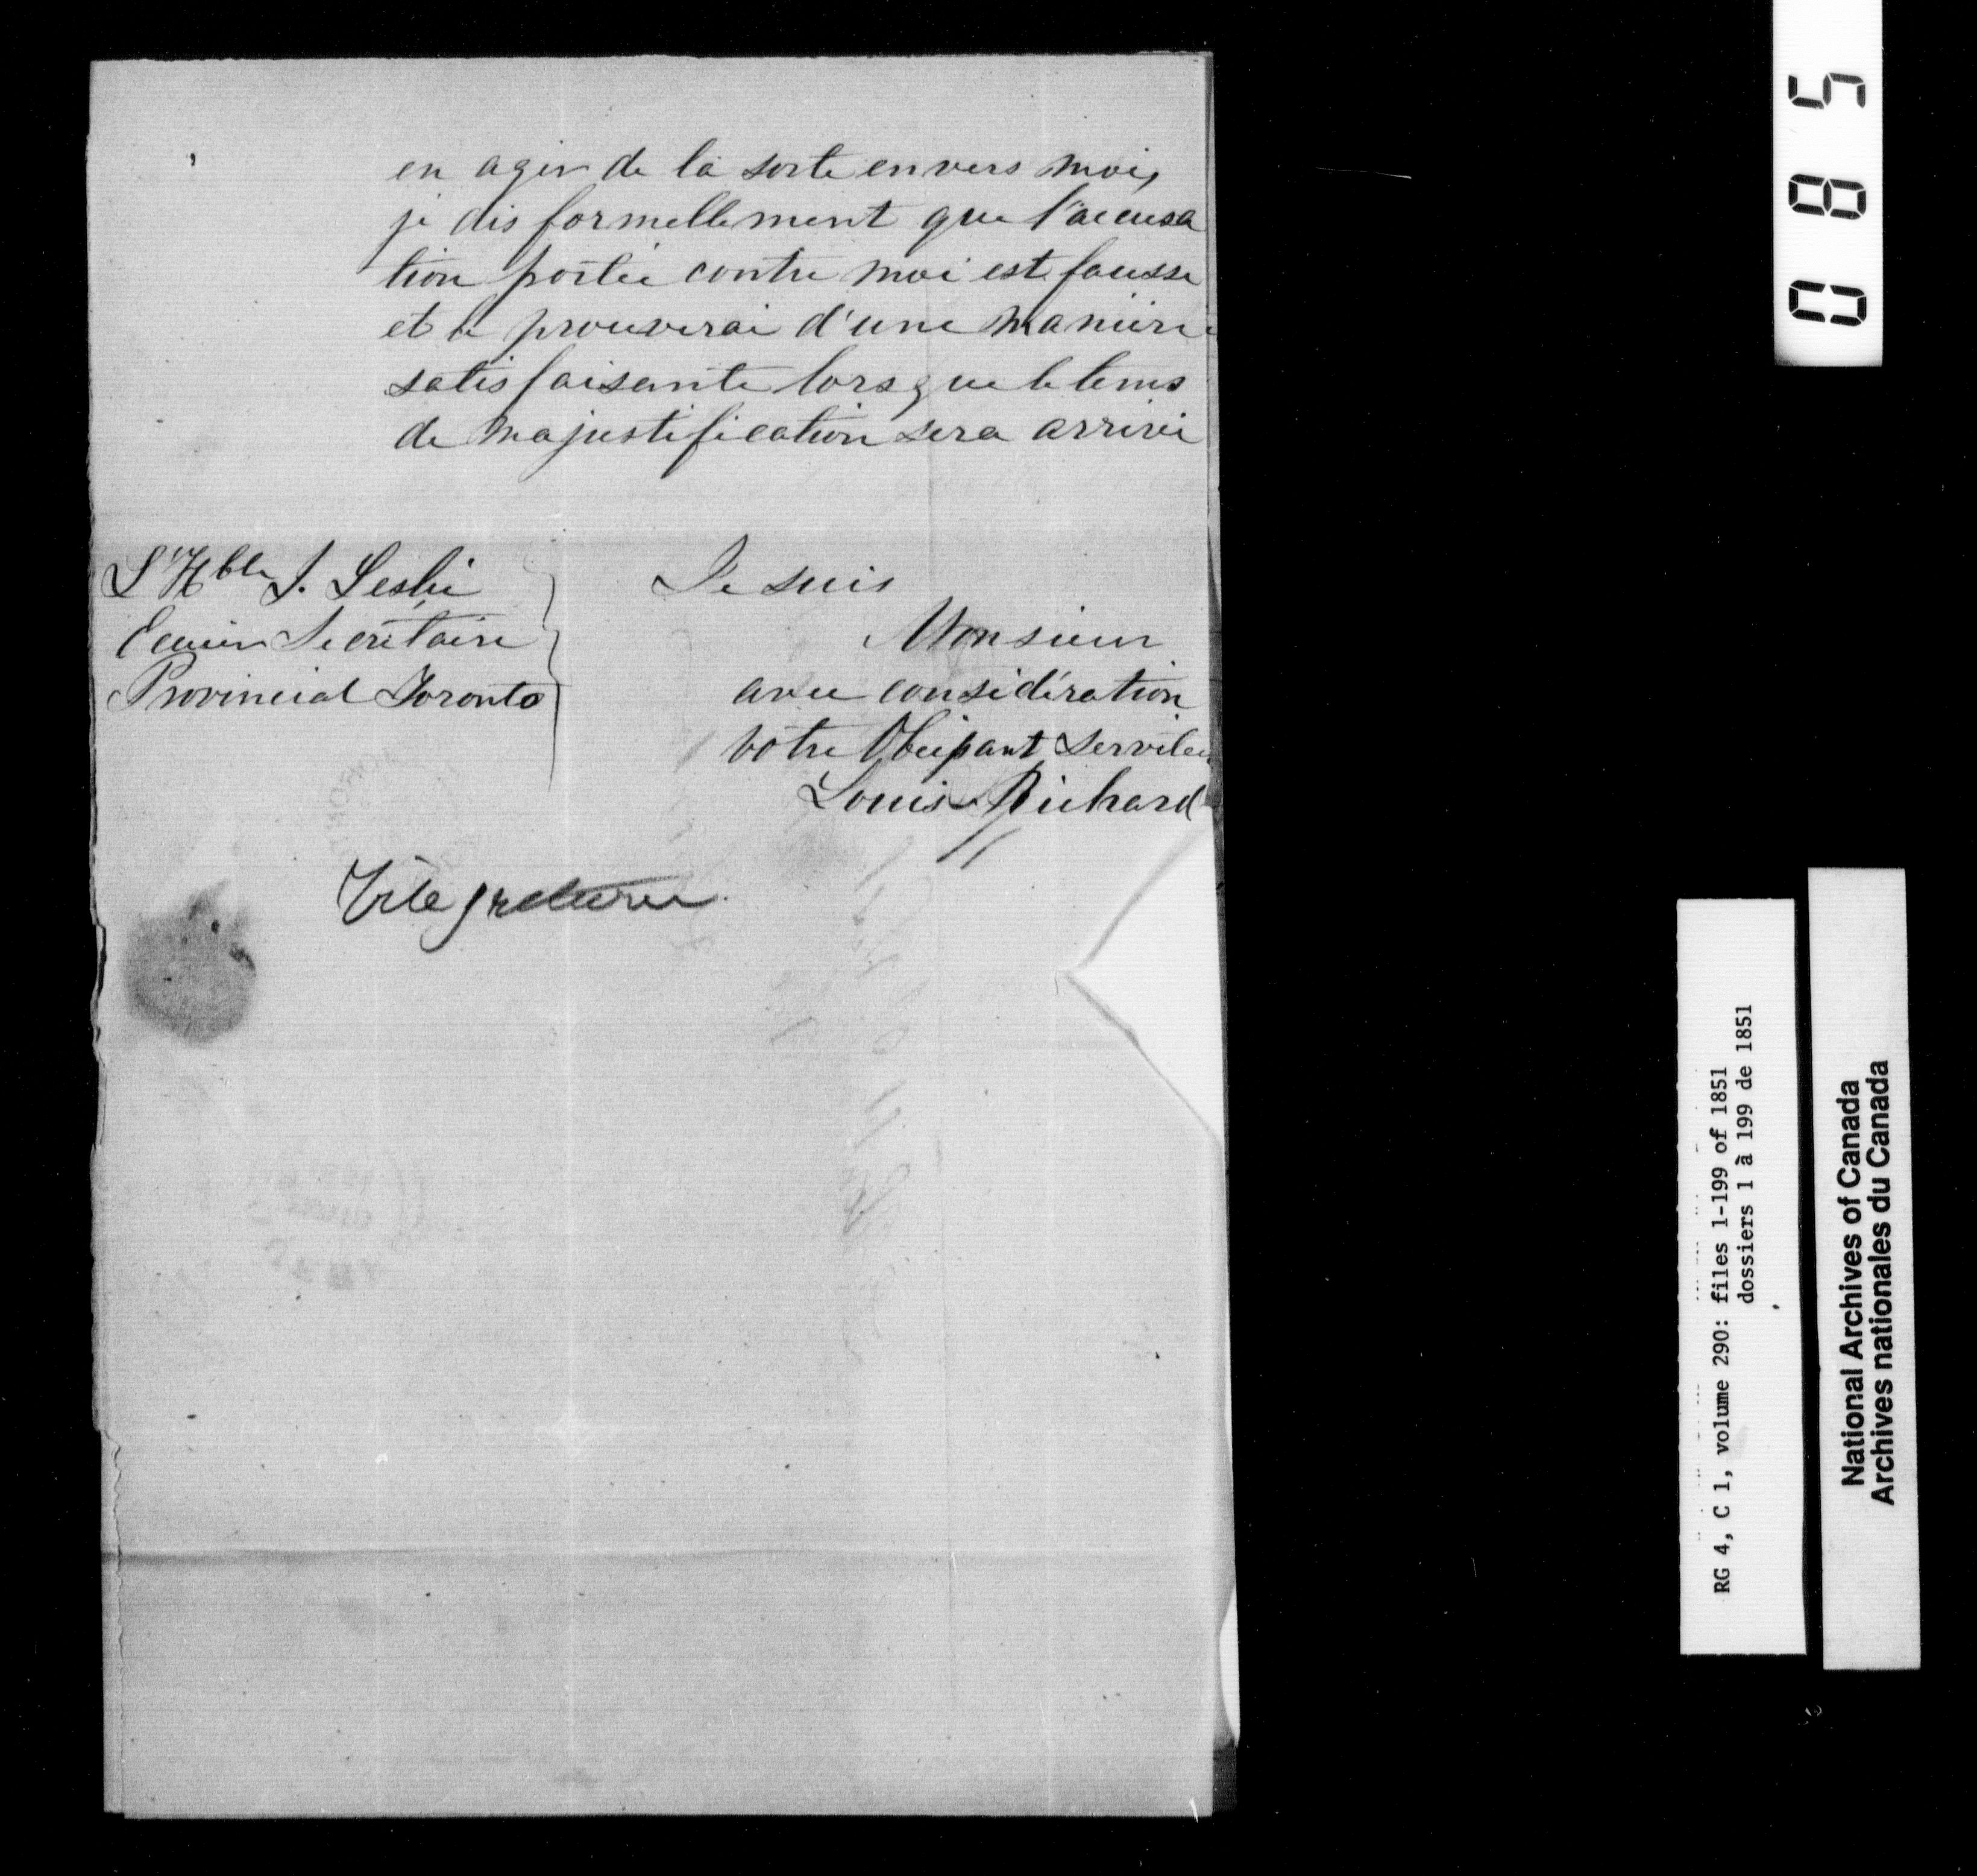 en agir de la sorte envers moi,
je dis formellement que l'accusa
tion portée contre moi est fausse
et le prouverai d'une manière
satisfaisante lorsque le tems
de ma justification sera arrivé
L'Hble J. Leslie
Ecuier Secrétaire
Provincial Toronto
Je suis
Monsieur
avec considération
votre Obeissant Serviteu
Louis Richard
0885
RG 4, C 1, volume 290: files 1-199 of 1851
dossiers 1 à 199 de 1851
National Archives of Canada
Archives nationales du Canada